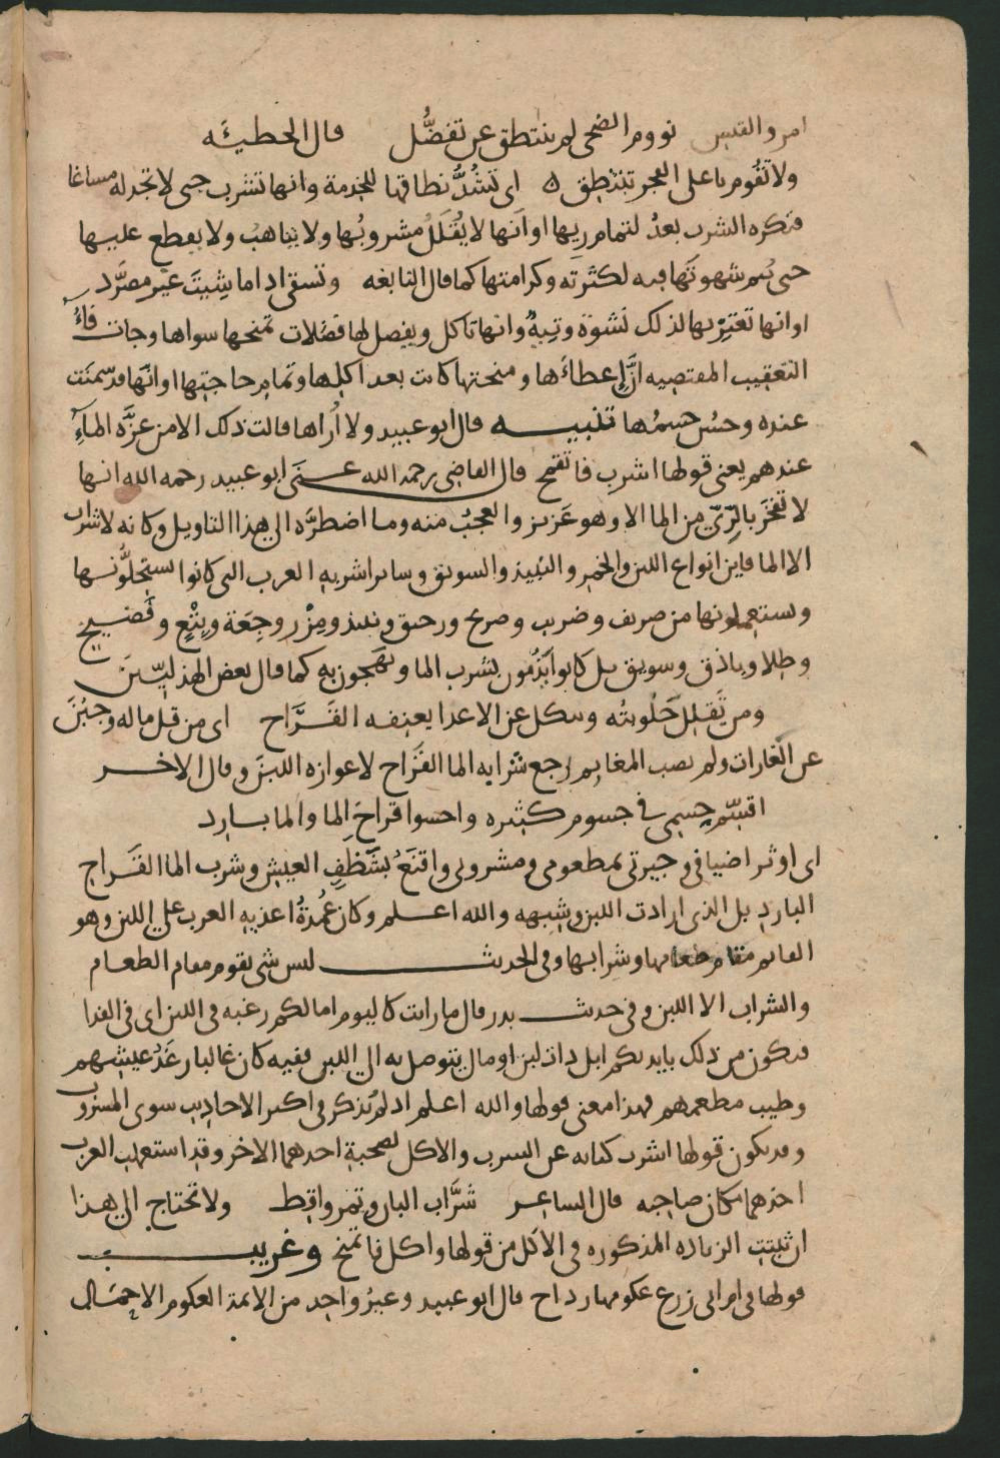 امرو القيس نووم الضحى لم ينتطق عن تفضُّل قال الحطيئَه
ولا تقُوم باعلى الفجر تنتطِق ه اى تشُدُّ نطاقها للخدمة وانها تشرب حتى لا تجد له مساغا
فتكره الشرب بعدُ لتمام ريها او انها لا يُقَلَلُ مشروبُها ولا يناهبُ ولا يقطع عليها
حتى تتم شهوتَها فيه لكثرَته وكرامتها كما قال النابغه وتسقى اذا ما شِيتَ غير مصَرَّد
او انها تعتريها لذلك نشوة وتِيهٌ وانها تاكل ويفضل لها فضلات تمنحها سواها وجات فاءُ
التعقيب المقتضيه انَّ إعطاءَها ومنحتها كانت بعد اكلها وتمام حاجتها او انها قد سمنَت
عنده وحسُن جسمُها تنبيه قال ابو عبيد ولا أراها قالت ذلك الا من عزَّه المآءِ
عندهم يعنى قولها اشرب فاتقمح قال القاضى رحمه الله عنَى ابو عبيد رحمه الله انها
لا تفخَر بالرِّىّ من الما الا وهو عَزيز والعجبُ منه وما اضطرَّه الى هذا التاويل وكانه لا شراب
الا الما فاين انواع اللبن والخمر والنبيذ والسويق وساير اشربه العرب التى كانوا يستحلُّونها
ويستعملونها من صريف وضريب وصريح ورحيق ونبيذ ومِزْر وجِعَة وبِتْع وفَضيخ
وطِلا وباذق وسويق بل كانوا يَذمّون بشرب الما ويهجون به كما قال بعض الهذليّينَ
ومن تَقلل حَلُوبتُه وينكل عن الاعدا يغبقه القَرَّاح اى من قل ماله وجبُنَ
عن الغارات ولم يصب المغانم رجع شرابه الما القَراح لاعوازه اللبن وقال الاخر
اقسِّم جسمى فى جسوم كثيره واحسوا قراحَ الما والما بارد
اى اوثر اضيافى وجيرتى بمطعومى ومشروبى واقنَعُ بشَظَفِ العيش وشرب الما القَراح
البارد بل الذى ارادت اللبن وشبهه والله اعلم وكان عُمدةُ اغذيه العرب على اللبن وهو
القايم مقام طعامها وشرابها وفى الحديث ليس شى يقوم مقام الطعام
والشراب الا اللبن وفى حديث بدر قال ما رايت كاليوم اما لكم رغبه فى اللبن اى فى الفدا
فيكون من ذلك بايديكم ابل ذات لبن او مال يتوصل به الى اللبن ففيه كان غالبا رغَدُ عيشهم
وطيب مطعمهم فهذا معنى قولها والله اعلم اذ لم تذكر فى اكثر الاحاديث سوى المشروب
وقد يكون قولها اشرب كنايه عن الشرب والاكل لصحبة احدهما الاخر وقد استعملت العرب
احدهما مكان صاحبه قال الشاعر شرَّاب البان وتمر واقِط ولا تحتاج الى هذا
ان ثبتت الزياده المذكوره فى الاكل من قولها واكل فاتمنح وغريب
قولها فى ام ابى زرع عكومها رداح قال ابو عبيد وغيرُ واحد من الايمة العكوم الاحمال